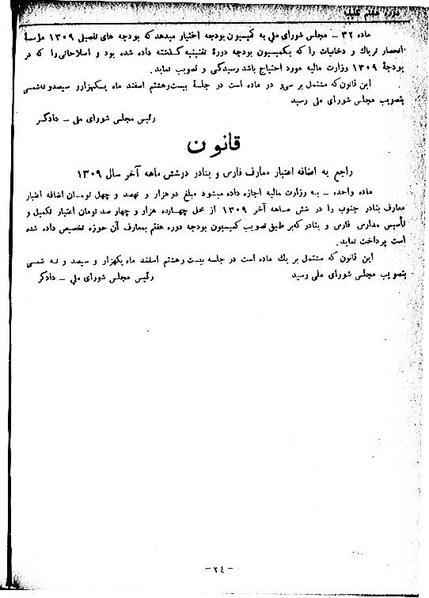 دوره هفتم تقنینیه
ماده ۳۲ – مجلس شورای ملی به کمیسیون بودجه اختیار میدهد که بودجه های تفصیلی ۱۳۰۹ مؤسسهٔ
انحصار تریاک و دخانیات را که بکمیسیون بودجه دورهٔ تقنینیه گذشته داده شده بود و اصلاحاتی را که در
بودجهٔ ۱۳۰۹ وزارت مالیه مورد احتیاج باشد رسیدگی و تصویب نماید.
این قانون که مشتمل بر سی و دو ماده است در جلسهٔ بیست و هشتم اسفند ماه یکهزار و سیصد و نه شمسی
بتصویب مجلس شورای ملی رسید
رئیس مجلس شورای ملی – دادگر
قانون
راجع به اضافه اعتبار معارف فارس و بنادر در شش ماهه آخر سال ۱۳۰۹
ماده واحده – به وزارت مالیه اجازه داده میشود مبلغ دو هزار و نهصد و چهل تومان اضافه اعتبار
معارف بنادر جنوب را در شش ماهه آخر ۱۳۰۹ از محل چهارده هزار و چهار صد تومان اعتبار تکمیل و
تأسیس مدارس فارس و بنادر که بر طبق تصویب کمیسیون بودجه دوره هفتم بمعارف آن حوزه تخصیص داده شده
است پرداخت نماید.
این قانون که مشتمل بر یک ماده است در جلسه بیست و هشتم اسفند ماه یکهزار و سیصد و نه شمسی
بتصویب مجلس شورای ملی رسید
رئیس مجلس شورای ملی – دادگر
–۲٤–